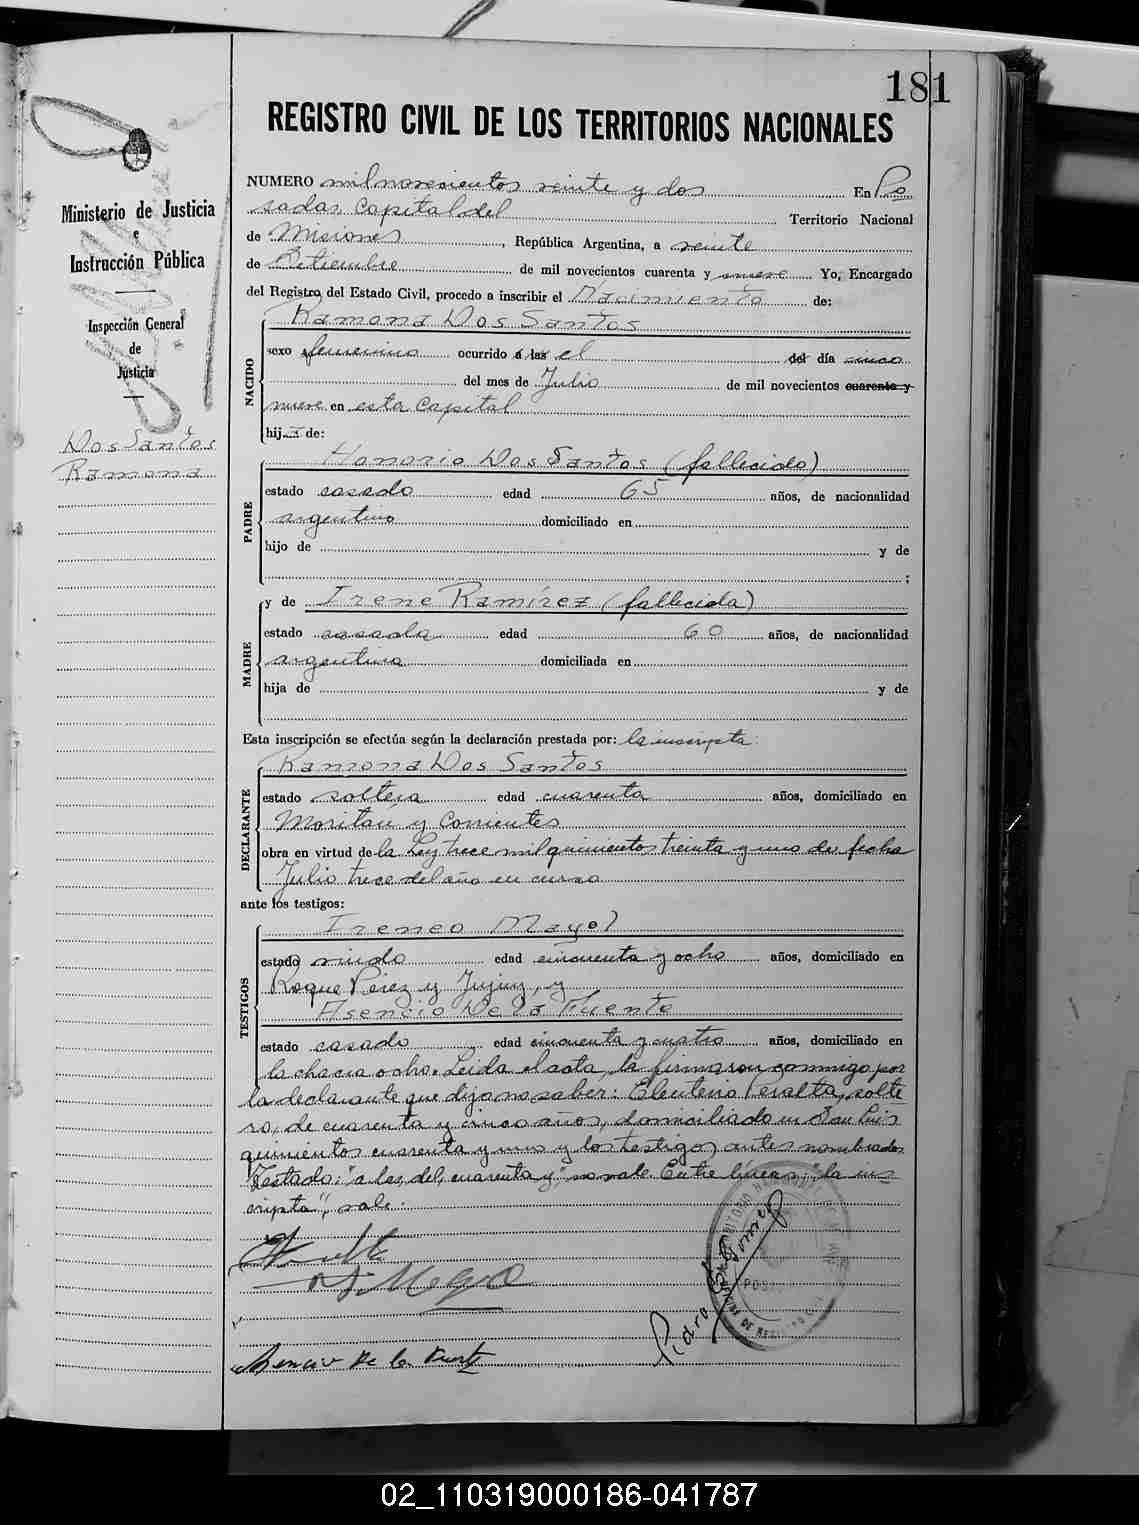 181
REGISTRO CIVIL DE LOS TERRITORIOS NACIONALES
Ministerio de Justicia
e
Instrucción Pública
Inspección General
de
Justicia
Dos Santos
Ramona
NUMERO mil novecientos veinte y dos En Po
sadas Capital del Territorio Nacional
de Misiones, República Argentina, a veinte
de Setiembre de mil novecientos cuarenta y nueve Yo, Encargado
del Registro del Estado Civil, procedo a inscribir el Nacimiento de:
NACIDO
Ramona Dos Santos
sexo femenino ocurrido a las el del día cinco
del mes de Julio de mil novecientos cuarenta y
nueve en esta Capital
hija de:
PADRE
Honorio Dos Santos (fallecido)
estado casado edad 65 años, de nacionalidad
argentino domiciliado en
hijo de y de
;
MADRE
y de Irene Ramírez (fallecida)
estado casada edad 60 años, de nacionalidad
argentina domiciliada en
hija de y de
Esta inscripción se efectúa según la declaración prestada por: la inscripta:
DECLARANTE
Ramona Dos Santos
estado soltera edad cuarenta años, domiciliado en
Moritan y Corrientes
obra en virtud de la Ley trece mil quinientos treinta y uno de fecha
Julio trece del año en curso
ante los testigos:
TESTIGOS
Ireneo Mayol
estado viudo edad cincuenta y ocho años, domiciliado en
Roque Pérez y Jujuy, y
Asencio De la Fuente
estado casado edad cincuenta y cuatro años, domiciliado en
la chacra ocho. Leida el acta, la firmaron conmigo por
la declarante que dijo no saber: Eleuterio Peralta, solte
ro, de cuarenta y cinco años, domiciliado en San Luis
quinientos cuarenta y uno y los testigos antes nombrados
Testado: "a las, del, cuarenta y", no vale. Entre líneas: "la ins
cripta", vale.
Asencio De la Fuente
02_110319000186-041787